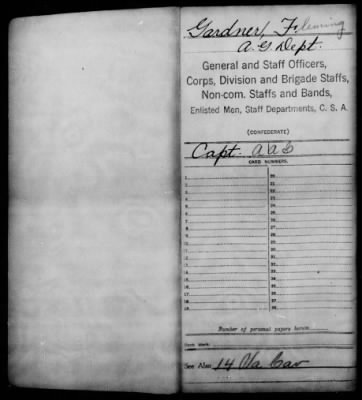 Gardner, Fleming
A. G. Dept.
General and Staff Officers,
Corps, Division and Brigade Staffs,
Non-com. Staffs and Bands,
Enlisted Men, Staff Departments, C. S. A.
(CONFEDERATE)
Capt. A A G
CARD NUMBERS.
1
20
2
21
3
22
4
23
5
24
6
25
7
26
8
27
9
28
10
29
11
30
12
31
13
32
14
33
15
34
16
35
17
36
18
37
19
38
Number of personal papers herein
Book Mark:
See Also 14 Va. Cav